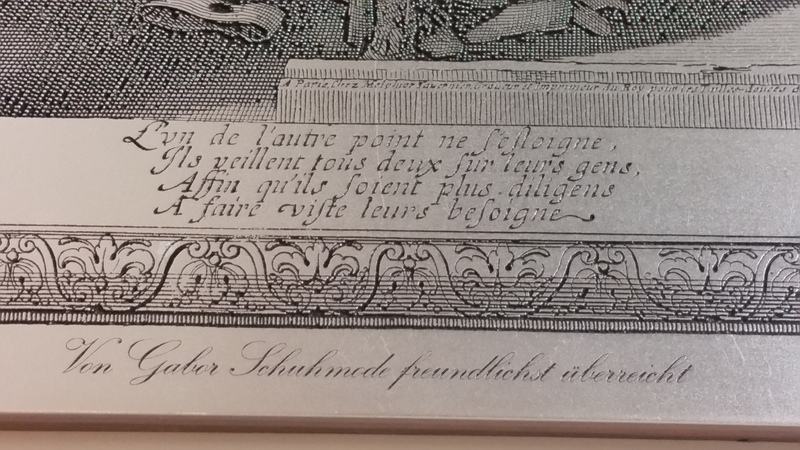 A Paris, Chez Melchior Tavernier, Graveur et Imprimeur du Roy pour les Tailles douces
L'vn de l'autre point ne s'esloigne,
Ils veillent tous deux sur leurs gens,
Affin qu'ils soient plus diligens
A faire viste leurs besoigne
Von Gabor Schuhmode freundlichst überreicht